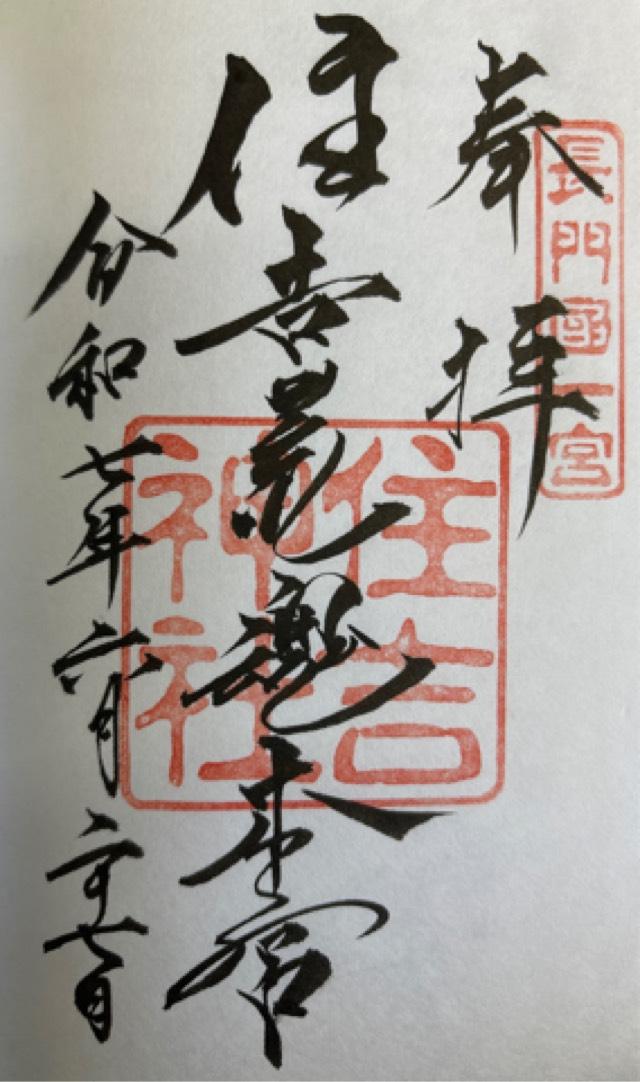 長門國一宮
奉拝
住吉荒魂本宮
住吉
神社
令和七年六月二十七日